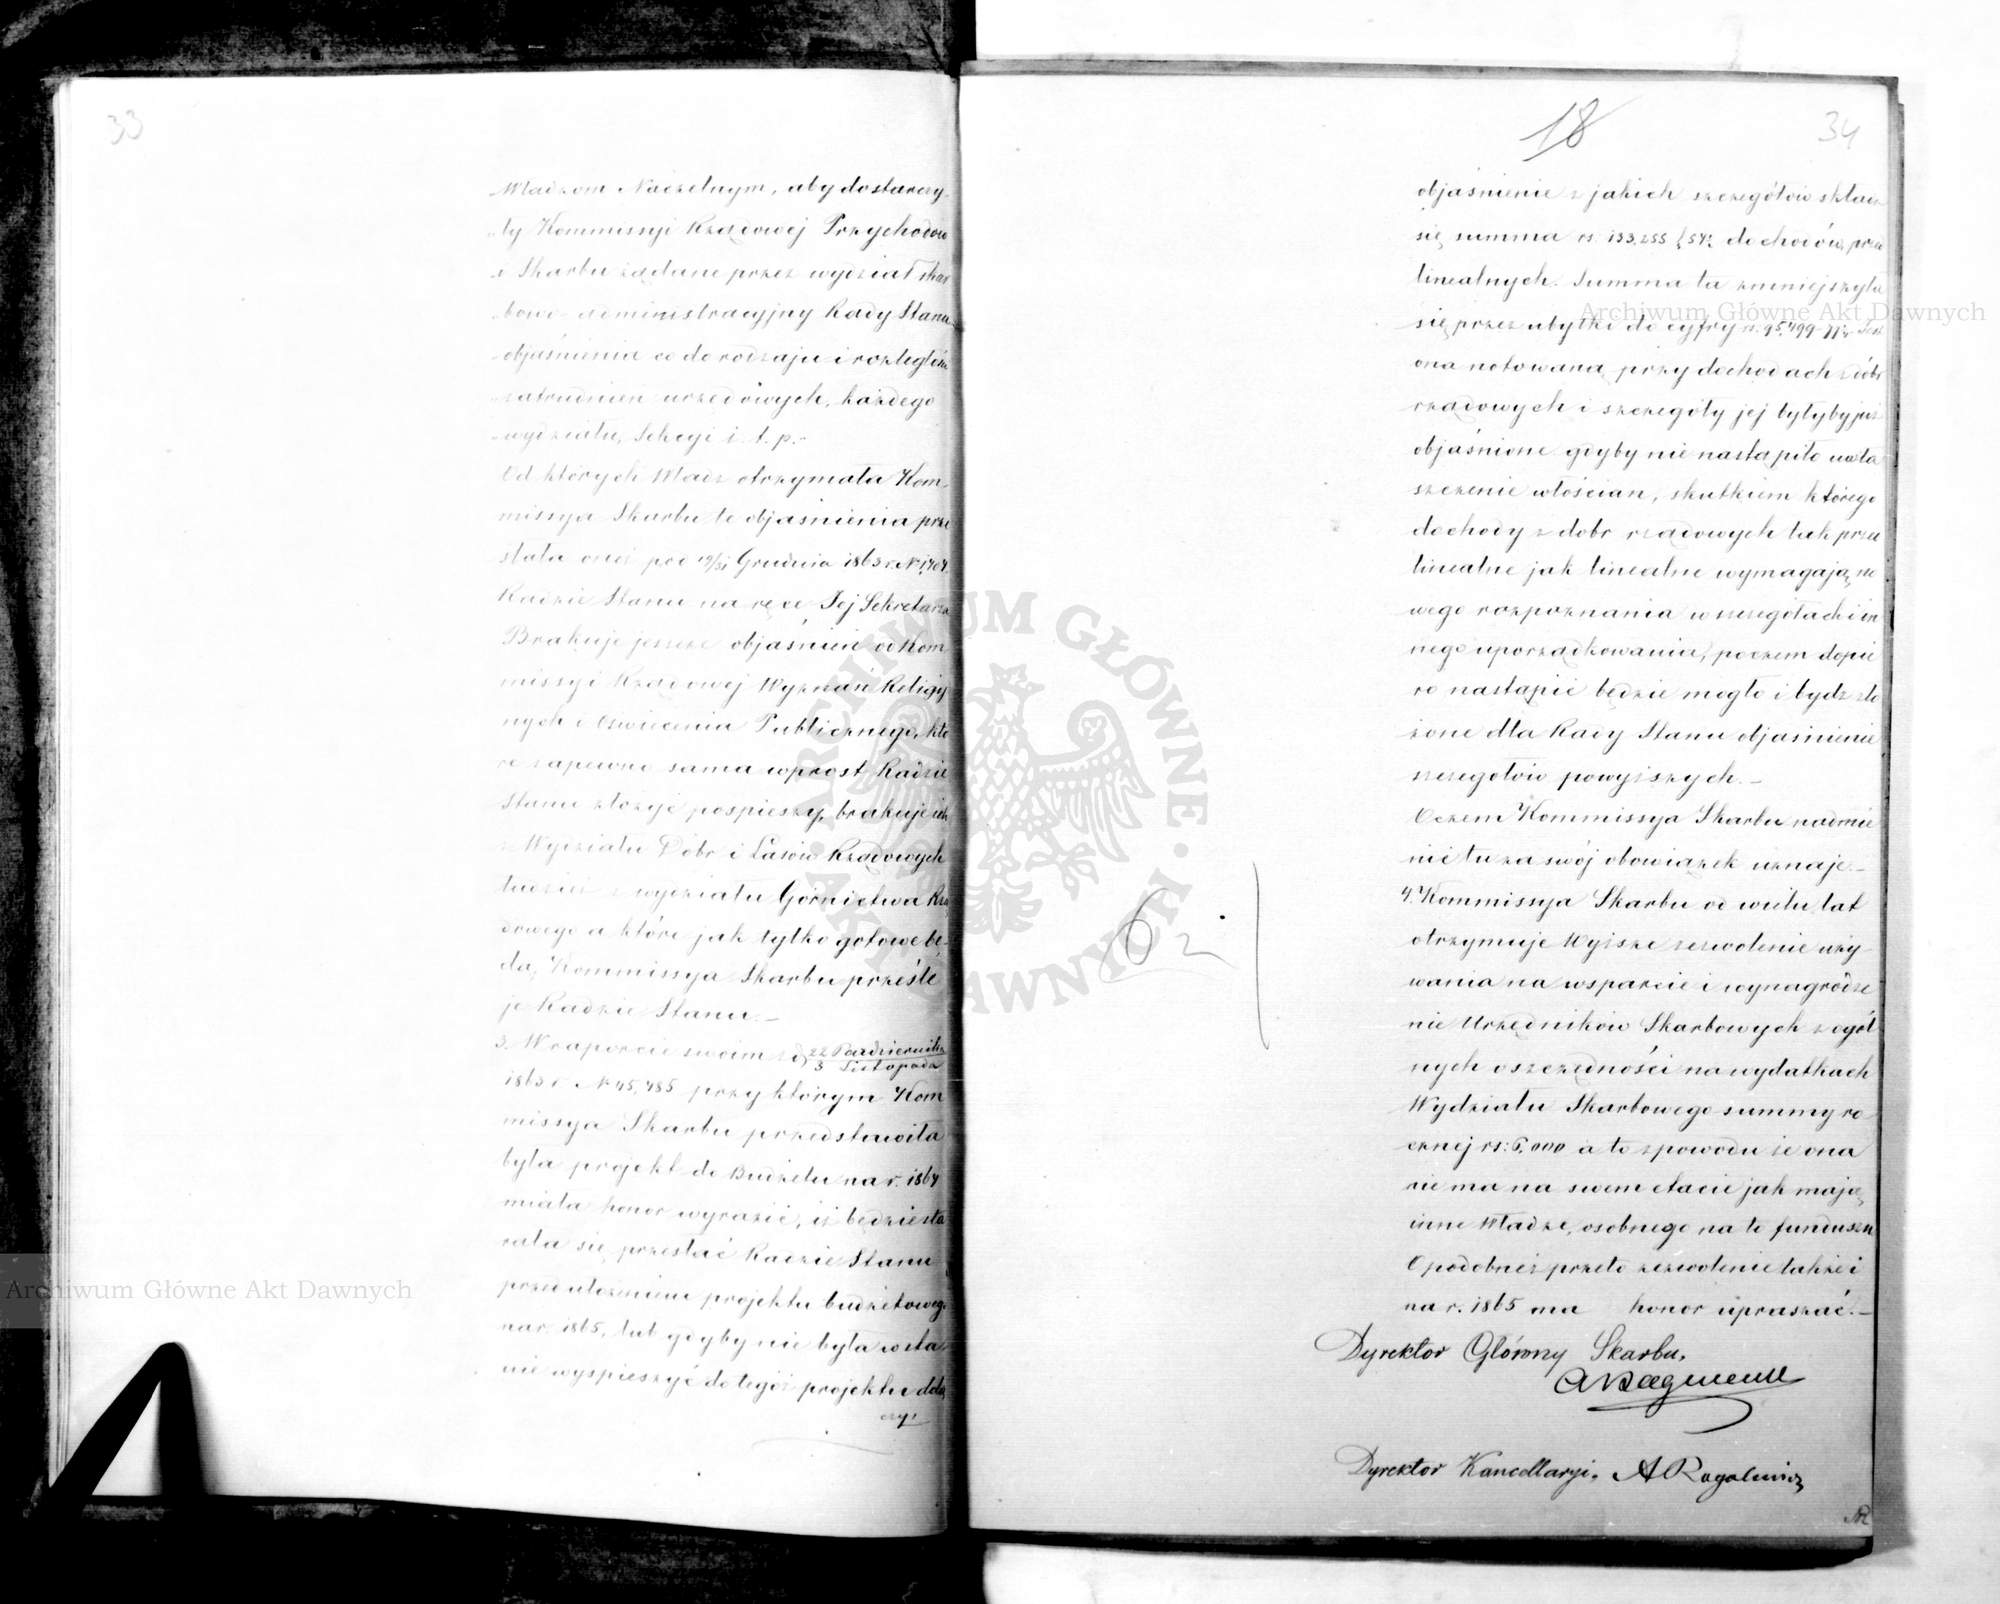 33
Władzom Naczelnym, aby dostarczy-
"ły Kommissyi Rządowej Przychodów
"i Skarbu żądane przez wydział skar
"bowo administracyjny Rady Stanu
"objaśnienia co do rodzaju i rozległości
"zatrudnień urzędowych, każdego
"wydziału, Sekcyi i. t. p.-
Od których Władz otrzymała Kom-
missya Skarbu te objaśnienia prze
słała oneż pod 19/31 Grudnia 1863 r. N
Radzie Stanu na ręce Jej Sekretarza
Brakuje jeszcze objaśnień od Kom
missyi Rządowej Wyznań Religij
nych i Oświecenia Publicznego, któ
re zapewno sama wprost Radzie
Stanu złożyć pospieszy, brakuje ich
z Wydziału Dóbr i Lasów Rządowych
tudzież z wydziału Górnictwa Rzą
dowego a które jak tylko gotowe bę-
dą, Kommissya Skarbu prześle
je Radzie Stanu.-
3. W raporcie swoim z d. 22 Października
3 Listopada
1863 r. N 45,485 przy którym Kom
missya Skarbu przedstawiła
była projekt do Budżetu na r. 1864
miała honor wyrazić, iż będzie sta
rała się przesłać Radzie Stanu
przed ułożeniem projektu budżetowego
na r. 1865, lub gdyby nie była w sta
nie wyspieszyć do tegoż projektu dołą
czyć
18
34
objaśnienie z jakich szczegółów składa
się summa rs. 133,255 k 54½ dochodów prze
linealnych. Summa ta zmniejszyła
się przez ubytki do cyfry rs. 95,499 Jest
ona notowaną przy dochodach z dóbr
rządowych i szczegóły jej byłyby już
objaśnione gdyby nie nastąpiło uwła
szczenie włościan, skutkiem którego
dochody z dóbr rządowych tak prze
linealne jak linealne wymagają no
wego rozpoznania w szczegółach i in
nego uporządkowania, poczem dopie
ro nastąpić będzie mogło i bydź zło
żone dla Rady Stanu objaśnienie
szczegółów powyższych.-
Oczem Kommissya Skarbu nadmie
nić tu za swój obowiązek uznaje.-
4. Kommissya Skarbu od wielu lat
otrzymuje Wyższe zezwolenie uży-
wania na wsparcie i wynagrodze
nie Urzędników Skarbowych z ogól
nych oszczędności na wydatkach
Wydziału Skarbowego summy ro
cznej rs: 6,000 a to z powodu że ona
nie ma na swem etacie jak mają
inne Władze, osobnego na to funduszu
O podobneż przeto zezwolenie także i
na r. 1865 ma honor upraszać.-
Dyrektor Główny Skarbu.
Dyrektor Kancellaryi.
Archiwum Główne Akt Dawnych
Archiwum Główne Akt Dawnych
ARCHIWUM GŁÓWNE · AKT DAWNYCH ·